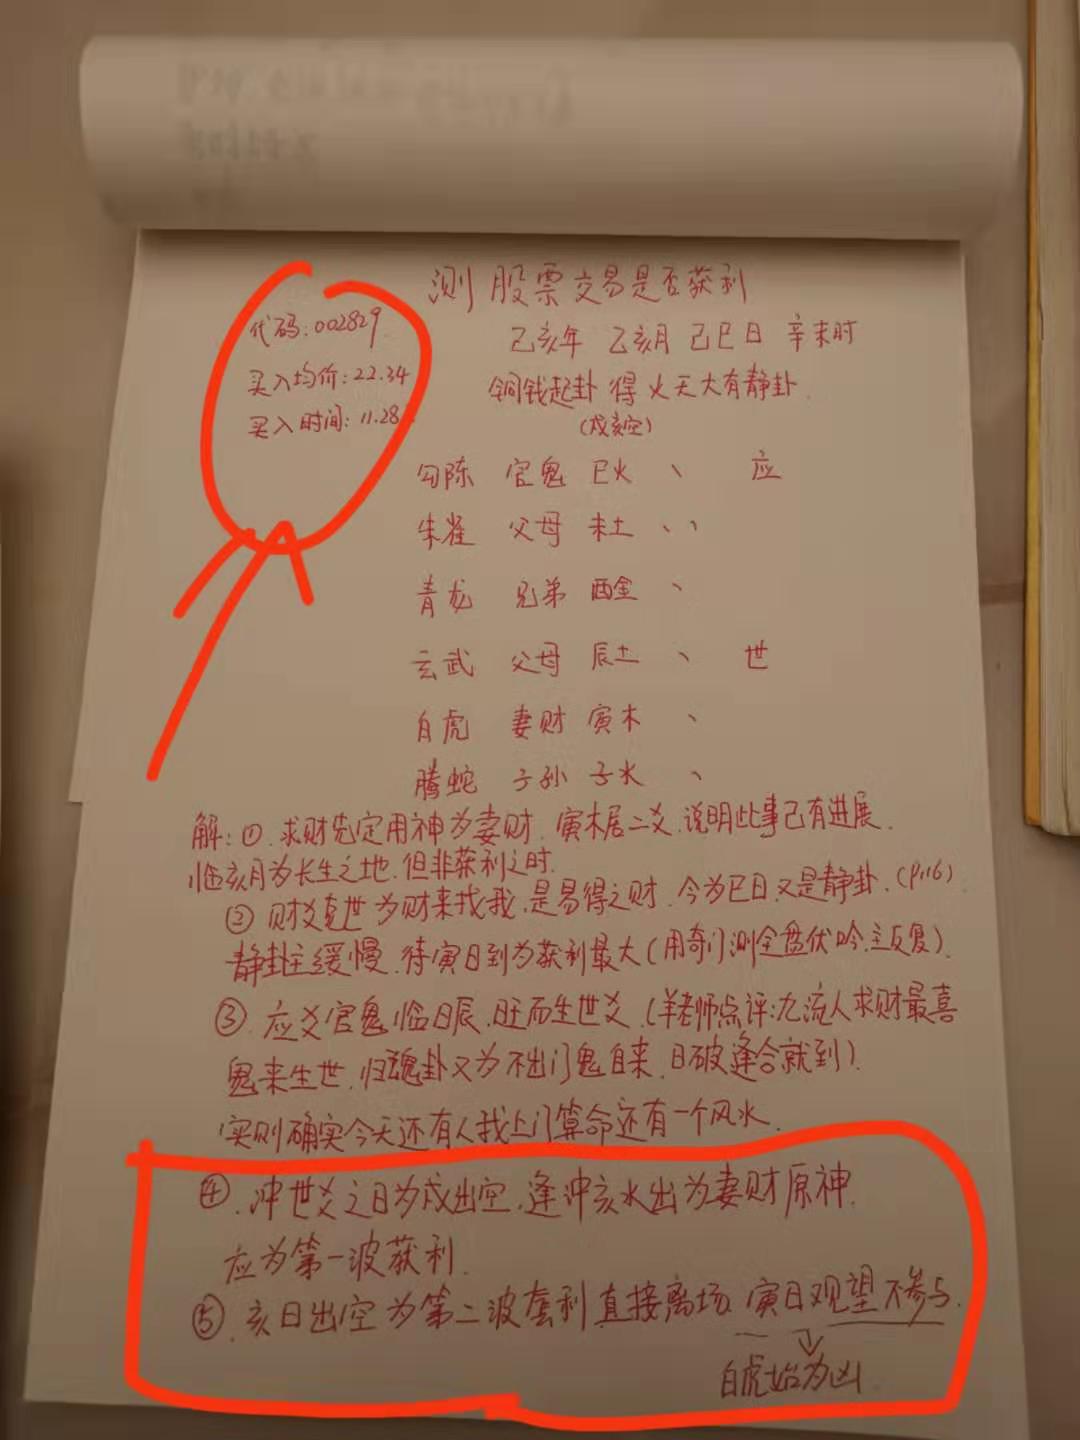 测股票交易是否获利
代码:002829
买入均价:22.34
买入时间:11.28
己亥年 乙亥月 己巳日 辛未时
铜钱起卦 得 火天大有静卦
(戌亥空)
勾陈 官鬼 巳火 、 应
朱雀 父母 未土 、、
青龙 兄弟 酉金 、
玄武 父母 辰土 、 世
白虎 妻财 寅木 、
腾蛇 子孙 子水 、
解:①.求财先定用神为妻财.寅木居二爻.说明此事已有进展.
临亥月为长生之地.但非获利之时.
② 财爻克世为财来找我.是易得之财.今为巳日又是静卦.(P116)
静卦主缓慢.待寅日到为获利最大(用奇门测全盘伏吟.主反复).
③.应爻官鬼临日辰.旺而生世爻.(羊老师点评:九流人求财最喜
鬼来生世.归魂卦又为不出门鬼自来.日破逢合就到).
实则确实今天还有人找上门算命还有一个风水.
④.冲世爻之日为戌出空.逢冲亥水出为妻财原神.
应为第一波获利.
⑤.亥日出空为第二波套利直接离场.寅日观望不参与.
白虎始为凶